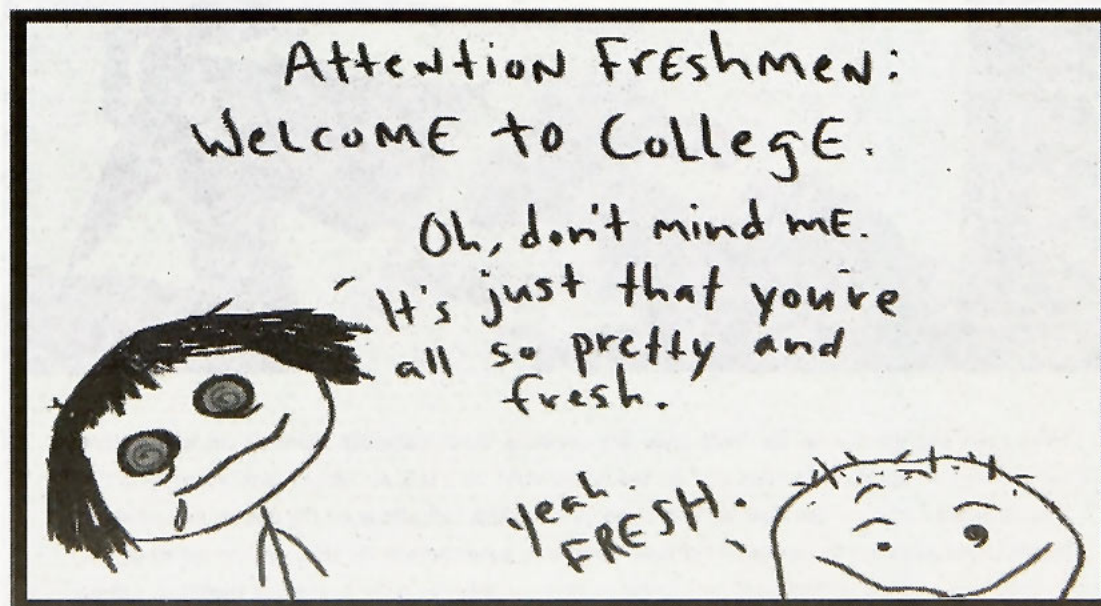 Attention Freshmen:
Welcome to College.
Oh, don't mind me.
It's just that you're
all so pretty and
fresh.
yeah.
FRESH.